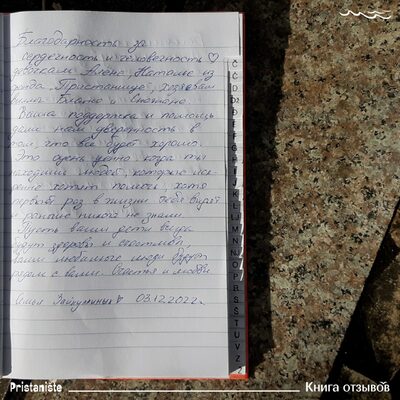 Благодарность за
сердечность и человечность ♡
девочкам Алене Наталье из
"Пристанище"
Ваша поддержка и помощь
дали нам уверенность в
том, что всё будет хорошо.
Это очень ценно когда ты
находишь людей, которые иск-
ренне хотят помочь, хотя
первый раз в жизни тебя видят
и раньше никого не знали.
Пусть ваши дети всегда
будут здоровы и счастливы,
ваши любимые люди будут
рядом с вами. Счастья и любви.
Семья 03.12.2022г.
Č
Ć
D
Dž
Đ
E
F
G
H
I
J
K
L
Lj
M
N
Nj
O
P
R
S
Š
T
U
V
Z
Pristanište
Книга отзывов